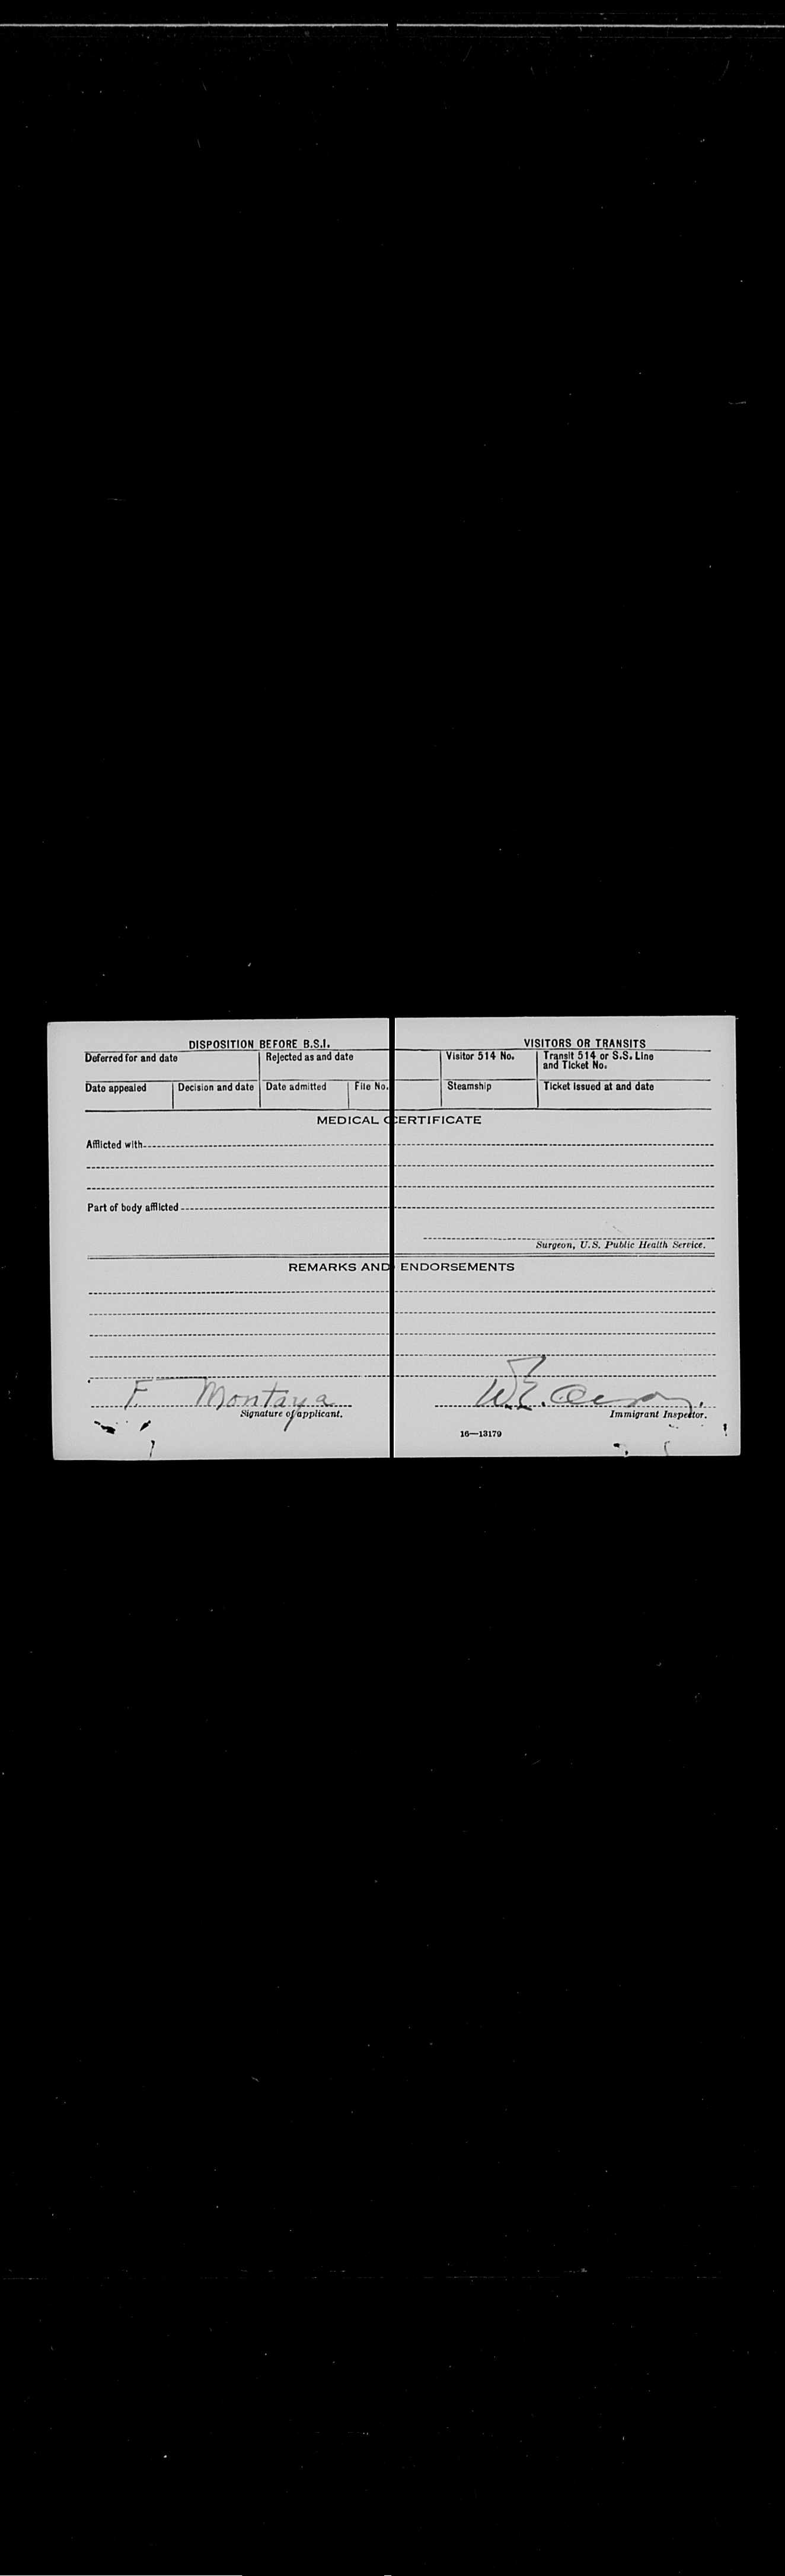 DISPOSITION BEFORE B.S.I. VISITORS OR TRANSITS
Deferred for and date Rejected as and date Visitor 514 No. Transit 514 or S.S. Line and Ticket No.
Date appealed Decision and date Date admitted File No. Steamship Ticket issued at and date
MEDICAL CERTIFICATE
Afflicted with
Part of body afflicted
Surgeon, U.S. Public Health Service.
REMARKS AND ENDORSEMENTS
F. Montaya W.E.
Signature of applicant. Immigrant Inspector.
16—13179